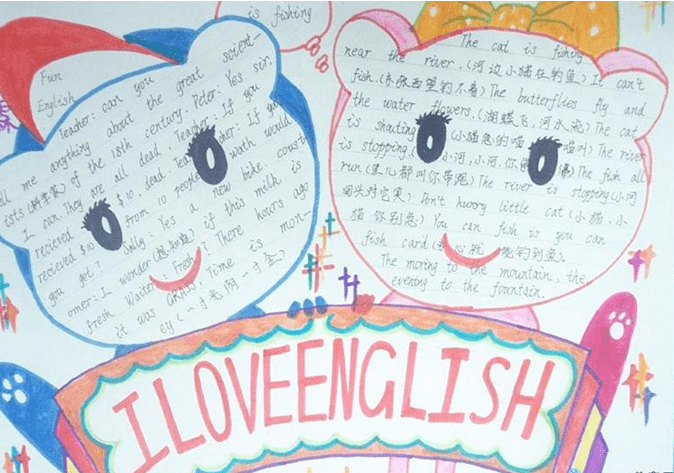 is fishing
Fun
English
Teacher: can you
tell me anything about the great scient-
ists (科学家) of the 18th century Peter: Yes sir.
I can. They are all dead. Teacher: If you
recieved $10 from 10 people
you got. Sally: Yes a new bike.
omer: I wonder if this milk is
fresh. Waiter: Fresh? There hours ago
it was GRASS. Time is mon-
ey (一寸光阴一寸金)
The cat is fishing
near the river. (河边小猫在钓鱼) It can't
fish. (东张西望钓不着) The butterflies fly and
the water flowers. (蝴蝶飞,河水流) The cat
is shouting (小猫急的喵喵叫) The river
is stopping. (小河,小河你 The fish all
run (里心都叫你带跑) The river is stopping (小河
回头对它笑) Don't hworry little cat (小猫,小
猫你别急) You can fish is you can
fish card 能钓到鱼).
The moring to the mountain, the
evening to the fountain.
ILOVEENGLISH